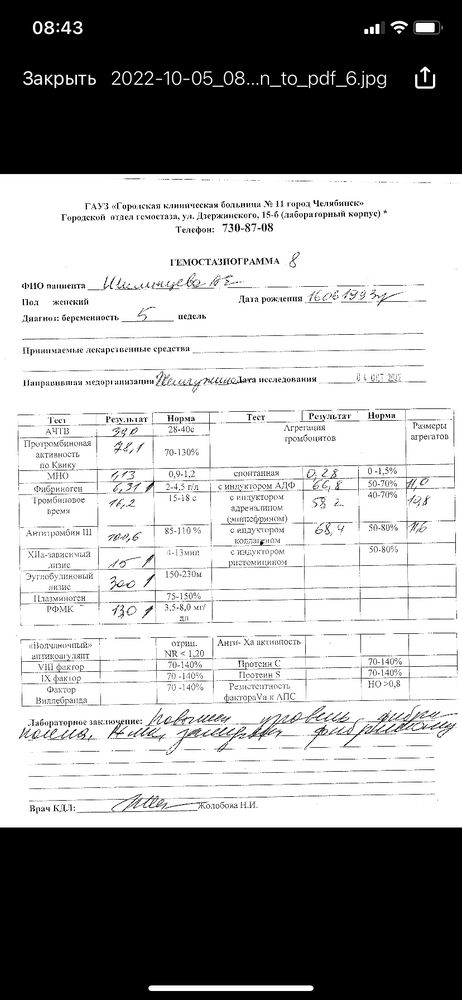 08:43
Закрыть 2022-10-05_08...n_to_pdf_6.jpg
ГАУЗ «Городская клиническая больница № 11 город Челябинск»
Городской отдел гемостаза, ул. Дзержинского, 15-б (лабораторный корпус) *
Телефон: 730-87-08
ГЕМОСТАЗИОГРАММА 8
ФИО пациента
Пол женский Дата рождения 16.06.1993г
Диагноз: беременность 5 недель
Принимаемые лекарственные средства
Направившая медорганизация Дата исследования 04 ОКТ
Тест Результат Норма Тест Результат Норма Размеры агрегатов
АЧТВ 28-40с Агрегация тромбоцитов
Протромбиновая активность по Квику 78,1 70-130%
МНО 1,13 0,9-1,2 спонтанная 0,28 0 -1,5%
Фибриноген 6,31 2-4,5 г/л с индуктором АДФ 66,8 50-70% 11,0
Тромбиновое время 16,2 15-18 с с индуктором адреналином (эпинефрином) 58,2 40-70% 10,8
Антитромбин III 100,6 85-110 % с индуктором коллагеном 68,4 50-80% 11,6
XIIa-зависимый лизис 15 4-13мин с индуктором ристомицином 50-80%
Эуглобулиновый лизис 300 150-230м
Плазминоген 75-150%
РФМК 13,0 3,5-8,0 мг/дл
«Волчаночный» антикоагулянт отриц. NR < 1,20 Анти- Ха активность
VIII фактор 70-140% Протеин С 70-140%
IX фактор 70 -140% Протеин S 70-140%
Фактор Виллебранда 70 -140% Резистентность фактораVа к АПС НО >0,8
Лабораторное заключение: Повышен уровень фибри-
ногена, замедлен фибринолиз
Врач КДЛ: Жолобова Н.И.